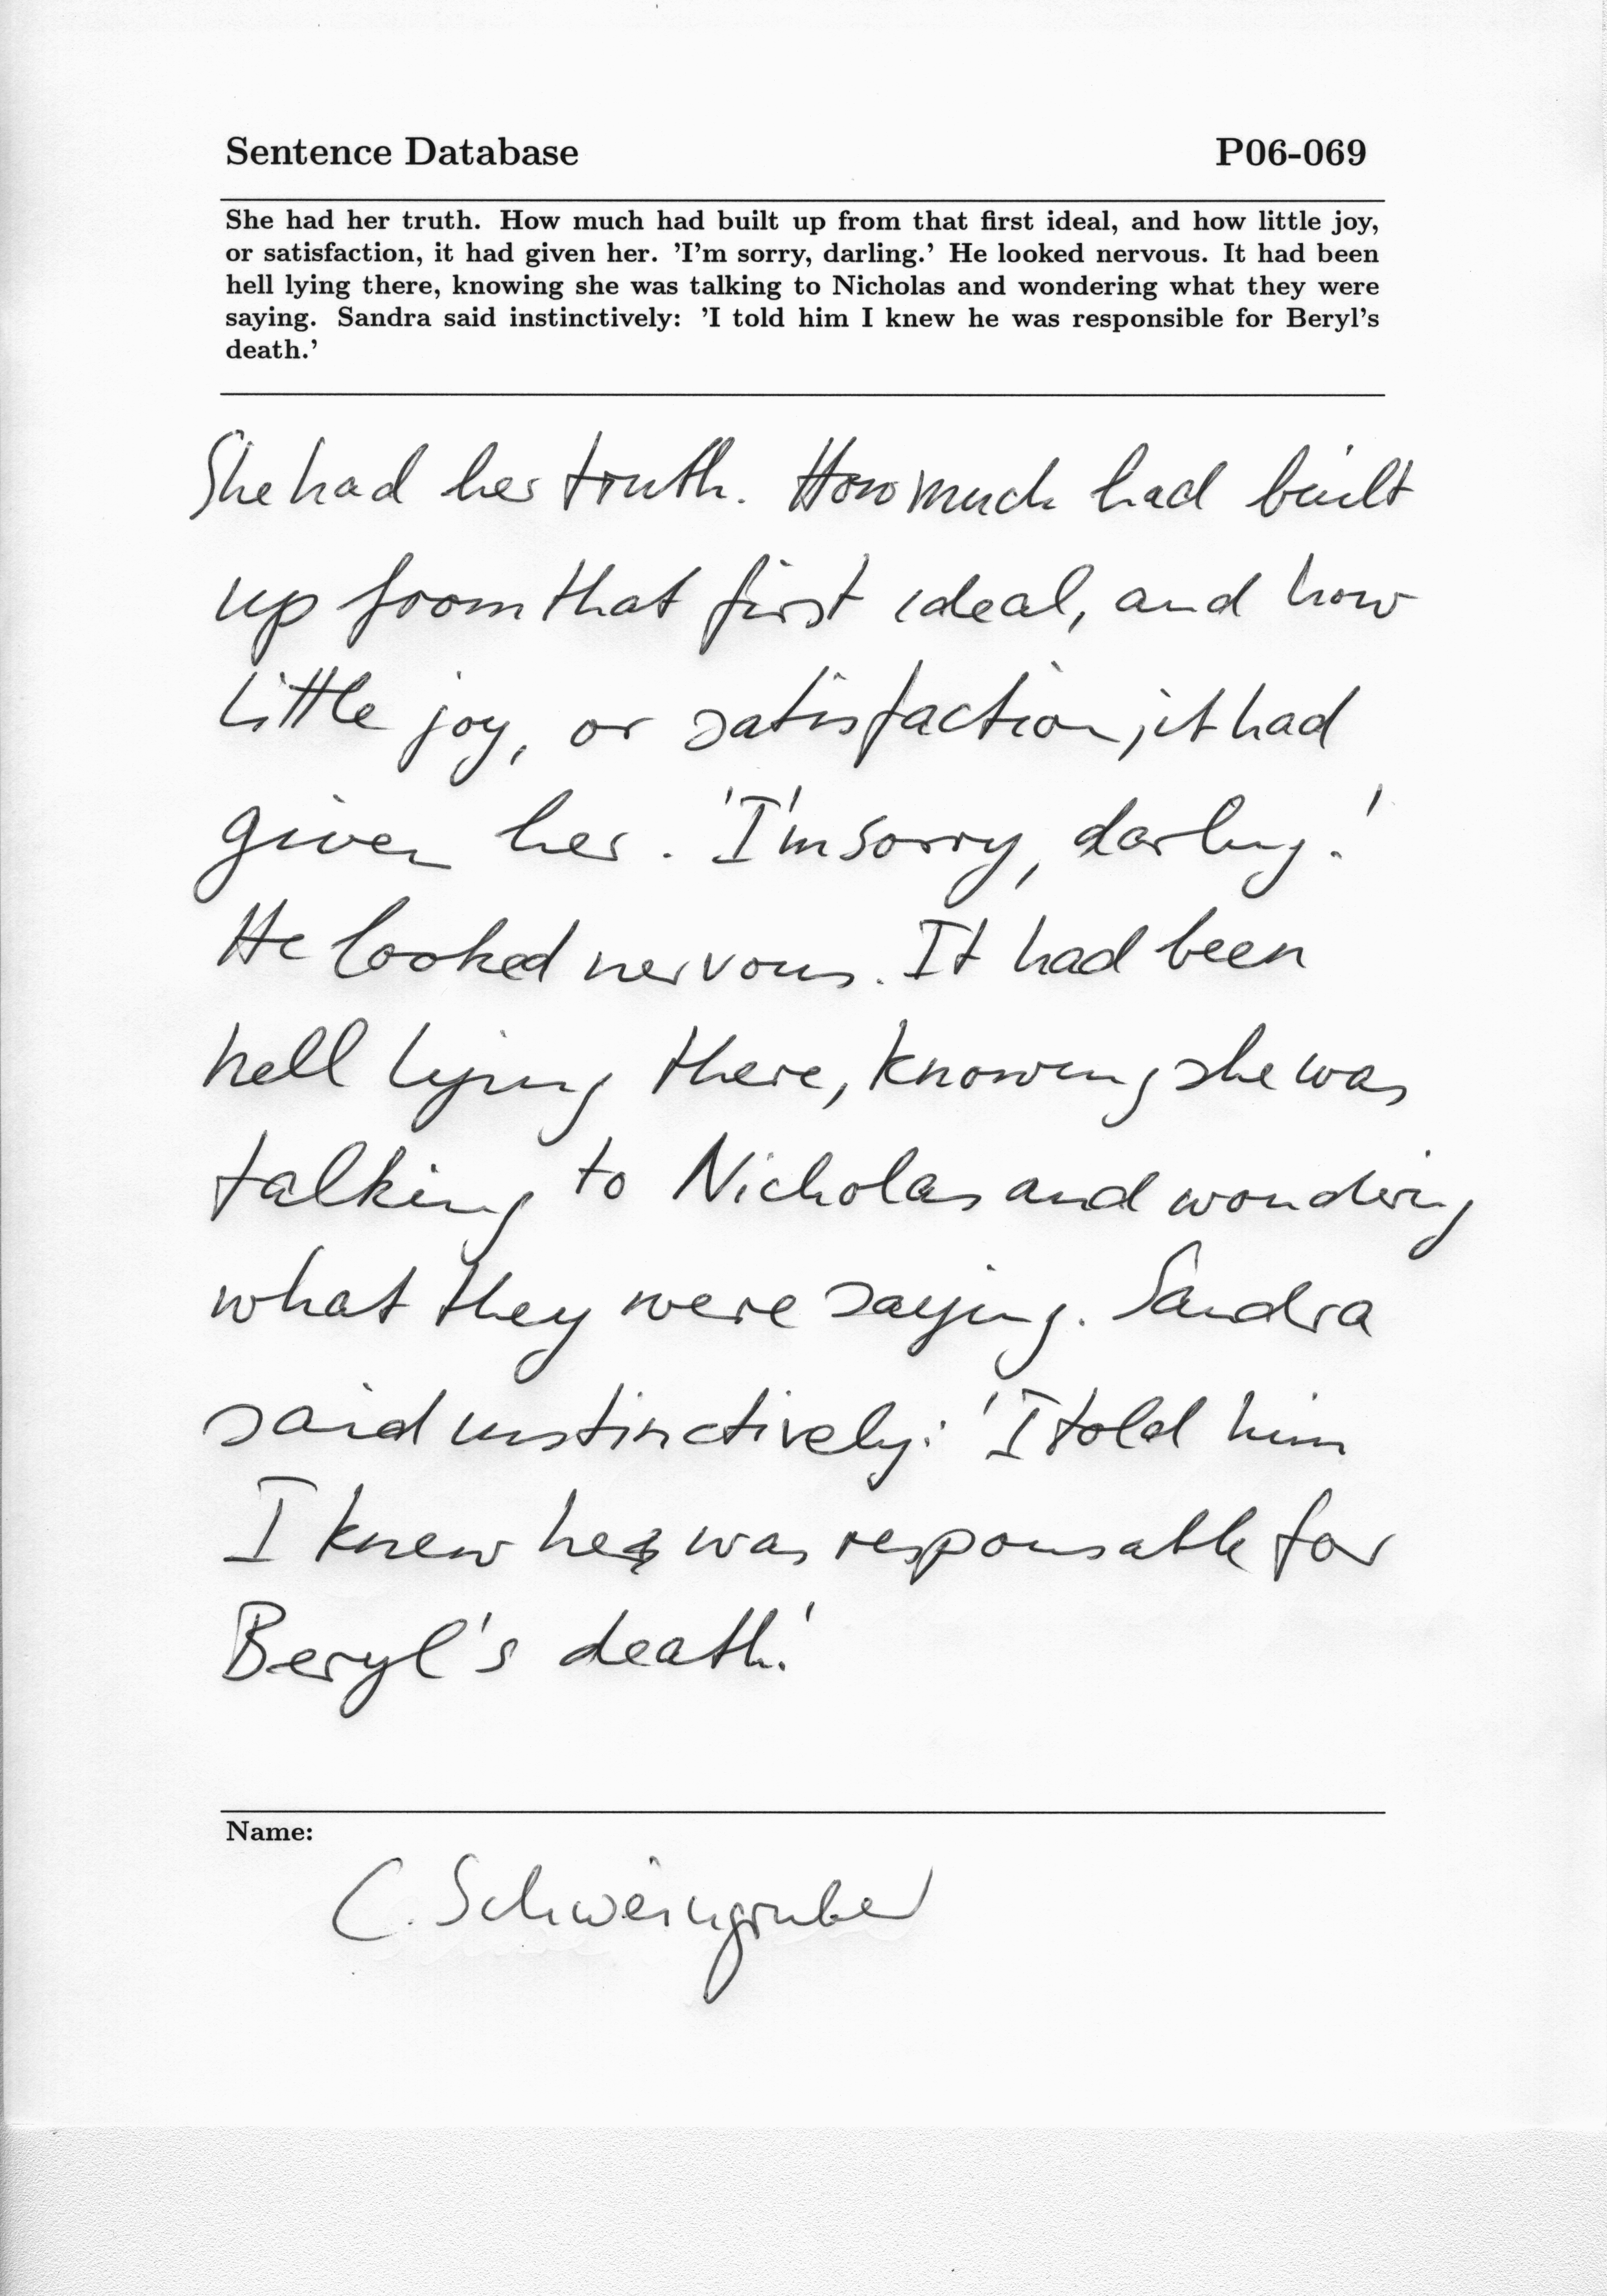 Sentence Database P06-069
She had her truth. How much had built up from that first ideal, and how little joy,
or satisfaction, it had given her. 'I'm sorry, darling.' He looked nervous. It had been
hell lying there, knowing she was talking to Nicholas and wondering what they were
saying. Sandra said instinctively: 'I told him I knew he was responsible for Beryl's
death.'
She had her truth. How much had built
up from that first ideal, and how
little joy, or satisfaction, it had
given her. 'I'm sorry, darling.'
He looked nervous. It had been
hell lying there, knowing she was
talking to Nicholas and wondering
what they were saying. Sandra
said instinctively: 'I told him
I knew he was responsable for
Beryl's death.'
Name:
C. Schweingruber